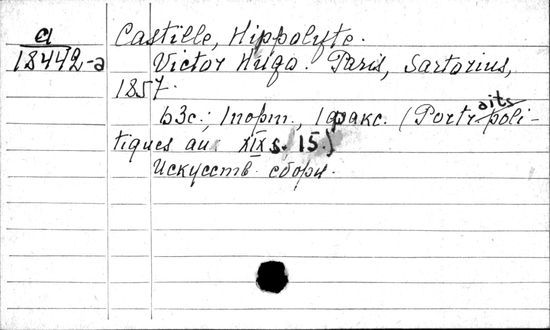 a
18442-a
Castille, Hippolyte.
Victor Hugo. Paris, Sartorius,
1857.
63c.; 1 порт., 1 факс. (Portraits poli-
tiques au XIX s. 15.)
Искусств. сборн.